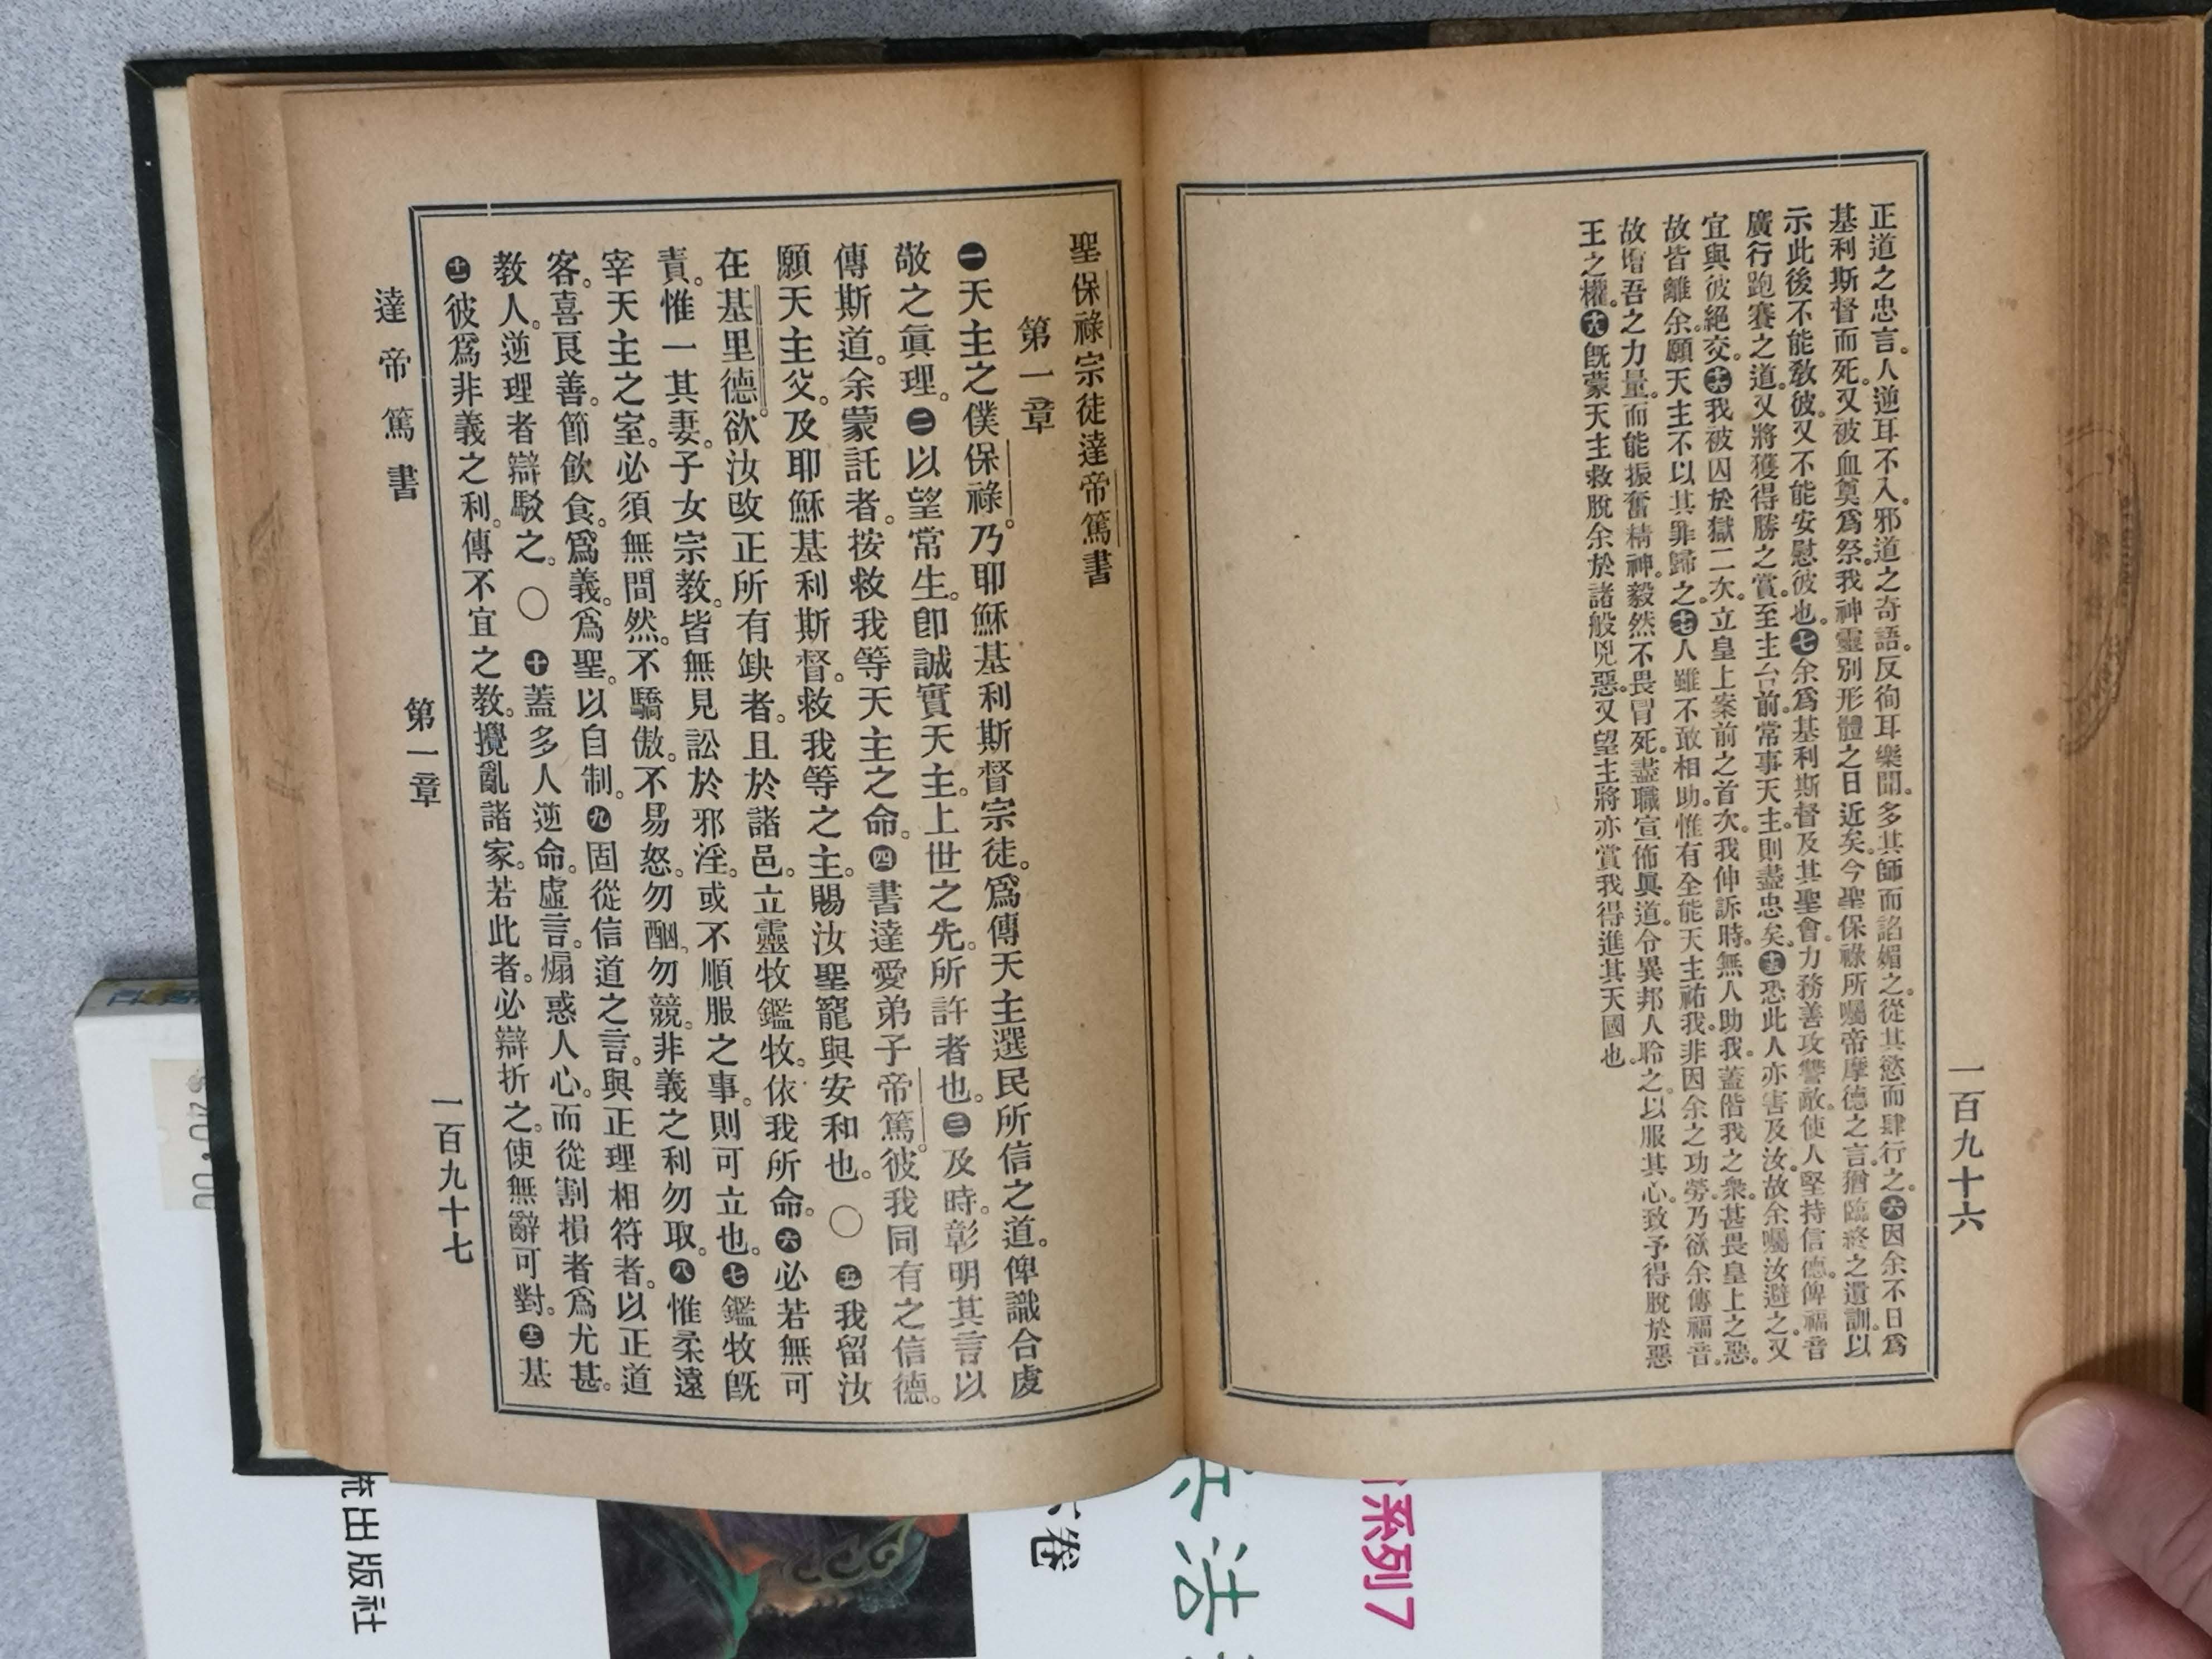 正道之忠言。人逆耳不入。邪道之奇語。反徇耳樂聞。多其師而諂媚之。從其慾而肆行之。六因余不日爲
基利斯督而死。又被血奠爲祭。我神靈別形體之日近矣。今聖保祿所囑帝摩德之言。猶臨終之遺訓。以
示此後不能敎彼。又不能安慰彼也。七余爲基利斯督及其聖會。力務善攻讐敵。使人堅持信德。俾福音
廣行。跑賽之道。又將獲得勝之賞。至主台前。常事天主。則盡忠矣。十五恐此人亦害及汝。故余囑汝避之。又
宜與彼絕交。十六我被囚於獄二次。立皇上案前之首次。我伸訴時。無人助我。蓋偕我之衆。甚畏皇上之惡。
故皆離余。願天主不以其罪歸之。十七人雖不敢相助。惟有全能天主祐我。非因余之功勞。乃欲余傳福音。
故增吾之力量。而能振奮精神。毅然不畏冒死。盡職宣佈眞道。令異邦人聆之。以服其心。致予得脫於惡
王之權。十八旣蒙天主救脫余於諸般兇惡。又望主將亦賞我得進其天國也。
一百九十六
聖保祿宗徒達帝篤書
第一章
一天主之僕保祿。乃耶穌基利斯督宗徒。爲傳天主選民所信之道。俾識合虔
敬之眞理。二以望常生。卽誠實天主。上世之先。所許者也。三及時。彰明其言。以
傳斯道。余蒙託者。按救我等天主之命。四書達愛弟子帝篤。彼我同有之信德。
願天主父。及耶穌基利斯督。救我等之主。賜汝聖寵與安和也。〇五我留汝
在基里德。欲汝改正所有缺者。且於諸邑。立靈牧鑑牧。依我所命。六必若無可
責。惟一其妻。子女宗教。皆無見訟於邪淫。或不順服之事。則可立也。七鑑牧旣
宰天主之室。必須無間然。不驕傲。不易怒。勿酗。勿競。非義之利勿取。八惟柔遠
客。喜艮善。節飲食。爲義。爲聖。以自制。九固從信道之言。與正理相符者。以正道
教人。逆理者辯駁之。〇十蓋多人逆命。虛言。煽惑人心。而從割損者爲尤甚。
十一彼爲非義之利。傳不宜之教。攪亂諸家。若此者。必辯折之。使無辭可對。十二基
達帝篤書
第一章
一百九十七
$20.00
流出版社
卷
兵法
系列7